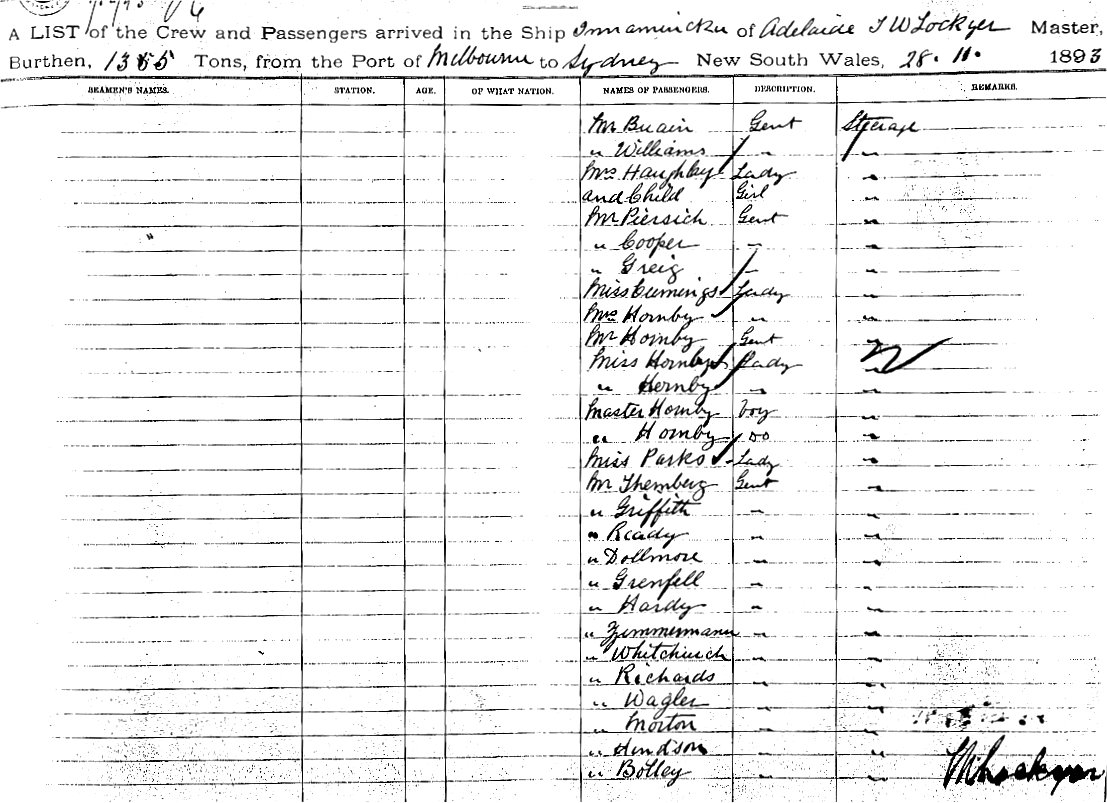 A LIST of the Crew and Passengers arrived in the Ship Innamincka of Adelaide J W Lockyer Master,
Burthen, 1355 Tons, from the Port of Melbourne to Sydney New South Wales, 28.11. 1893
SEAMEN'S NAMES. STATION. AGE. OF WHAT NATION. NAMES OF PASSENGERS. DESCRIPTION. REMARKS.
Mr Buain Gent Steerage
" Williams " "
Mrs Haughby Lady "
and Child Girl "
Mr Piersich Gent "
" Cooper " "
" Greig " "
Miss Cumings Lady "
Mrs Hornby " "
Mr Hornby Gent "
Miss Hornby Lady "
" Hornby " "
Master Hornby boy "
" Hornby Do "
Miss Parks Lady "
Mr Themberg Gent "
" Griffith " "
" Ready " "
" Dollmore " "
" Grenfell " "
" Hardy " "
" Zimmermann " "
" Whitchurch " "
" Richards " "
" Wagler " "
Morton " "
" Hindson " "
" Bolley " "
Lockyer